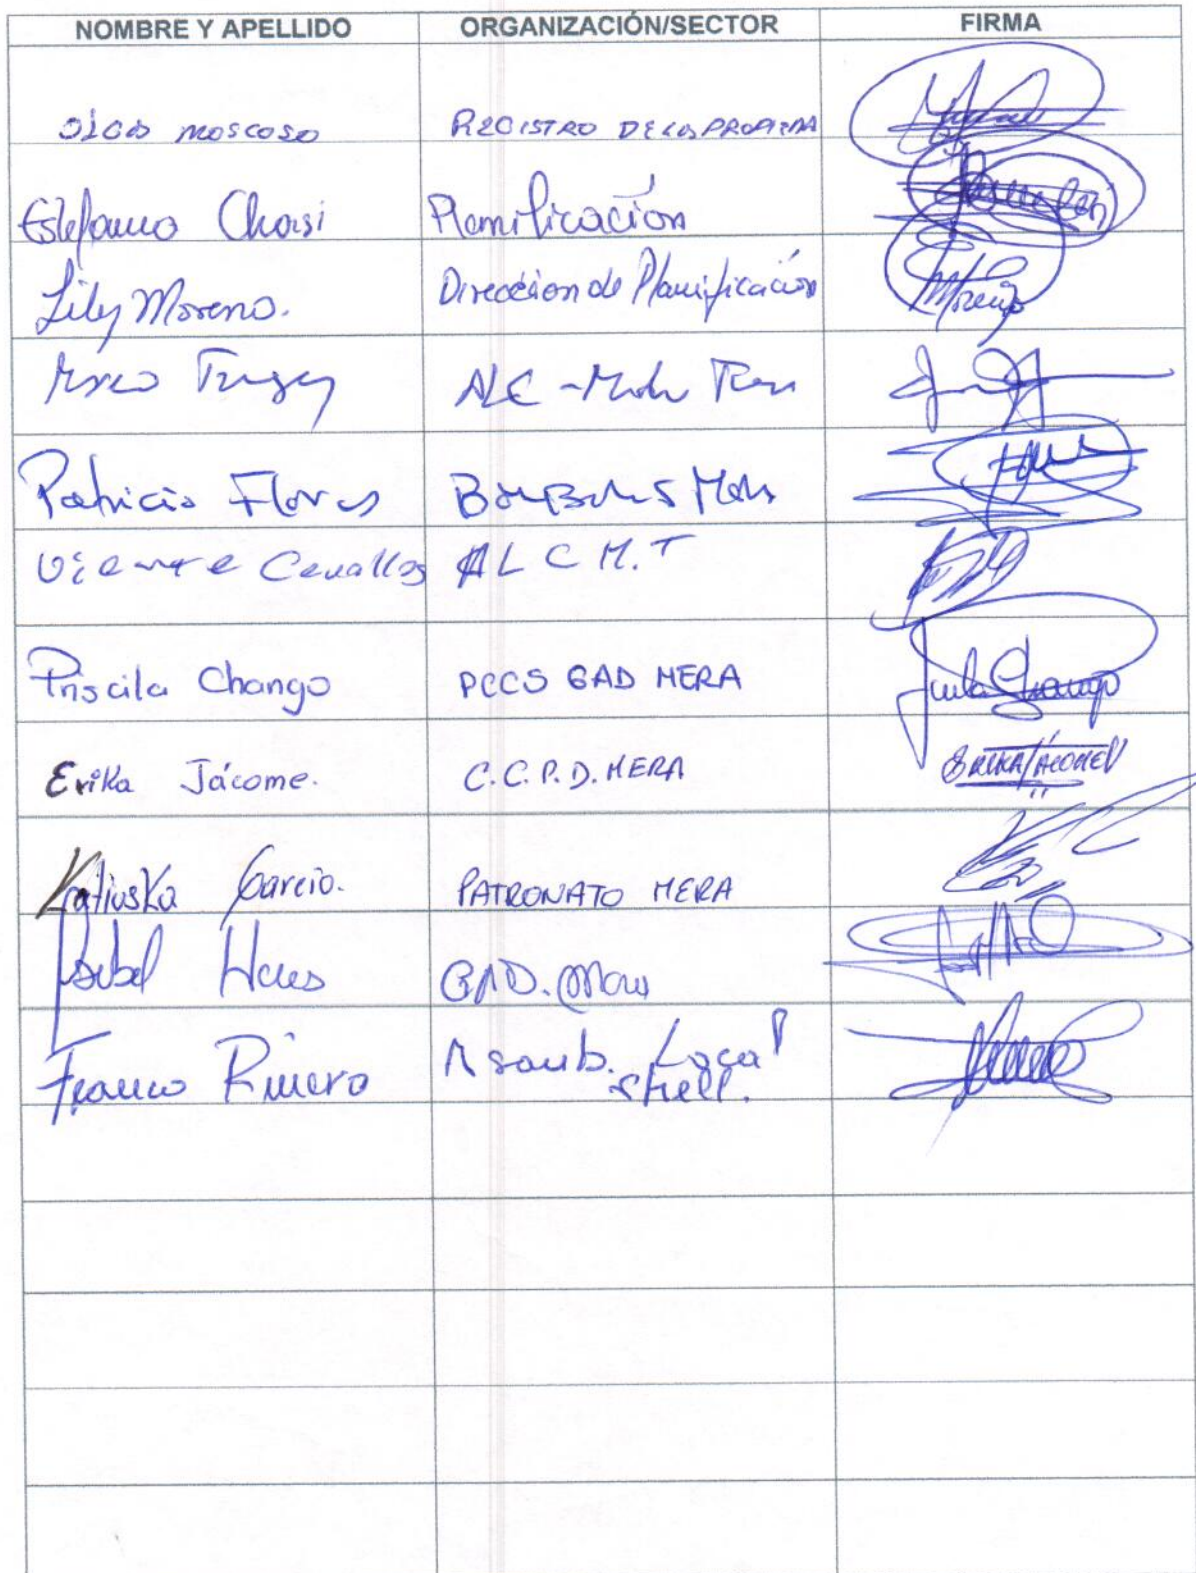 NOMBRE Y APELLIDO ORGANIZACIÓN/SECTOR FIRMA
Moscoso REGISTRO DE LA PROPIEDA
Estefania Chasi Planificación
Lily Moreno. Dirección de Planificación Moreno
ALC
Patricio Flores Bomberos Mera
Vicente Cevallos ALC M.T
Priscila Chango PCCS GAD MERA Chango
Erika Jácome. C.C.P.D. MERA ERIKA JÁCOME V
Katiuska Garcia. PATRONATO MERA
Isabel GAD. Mera
Franco Rivera Asamb. Local
Shell.